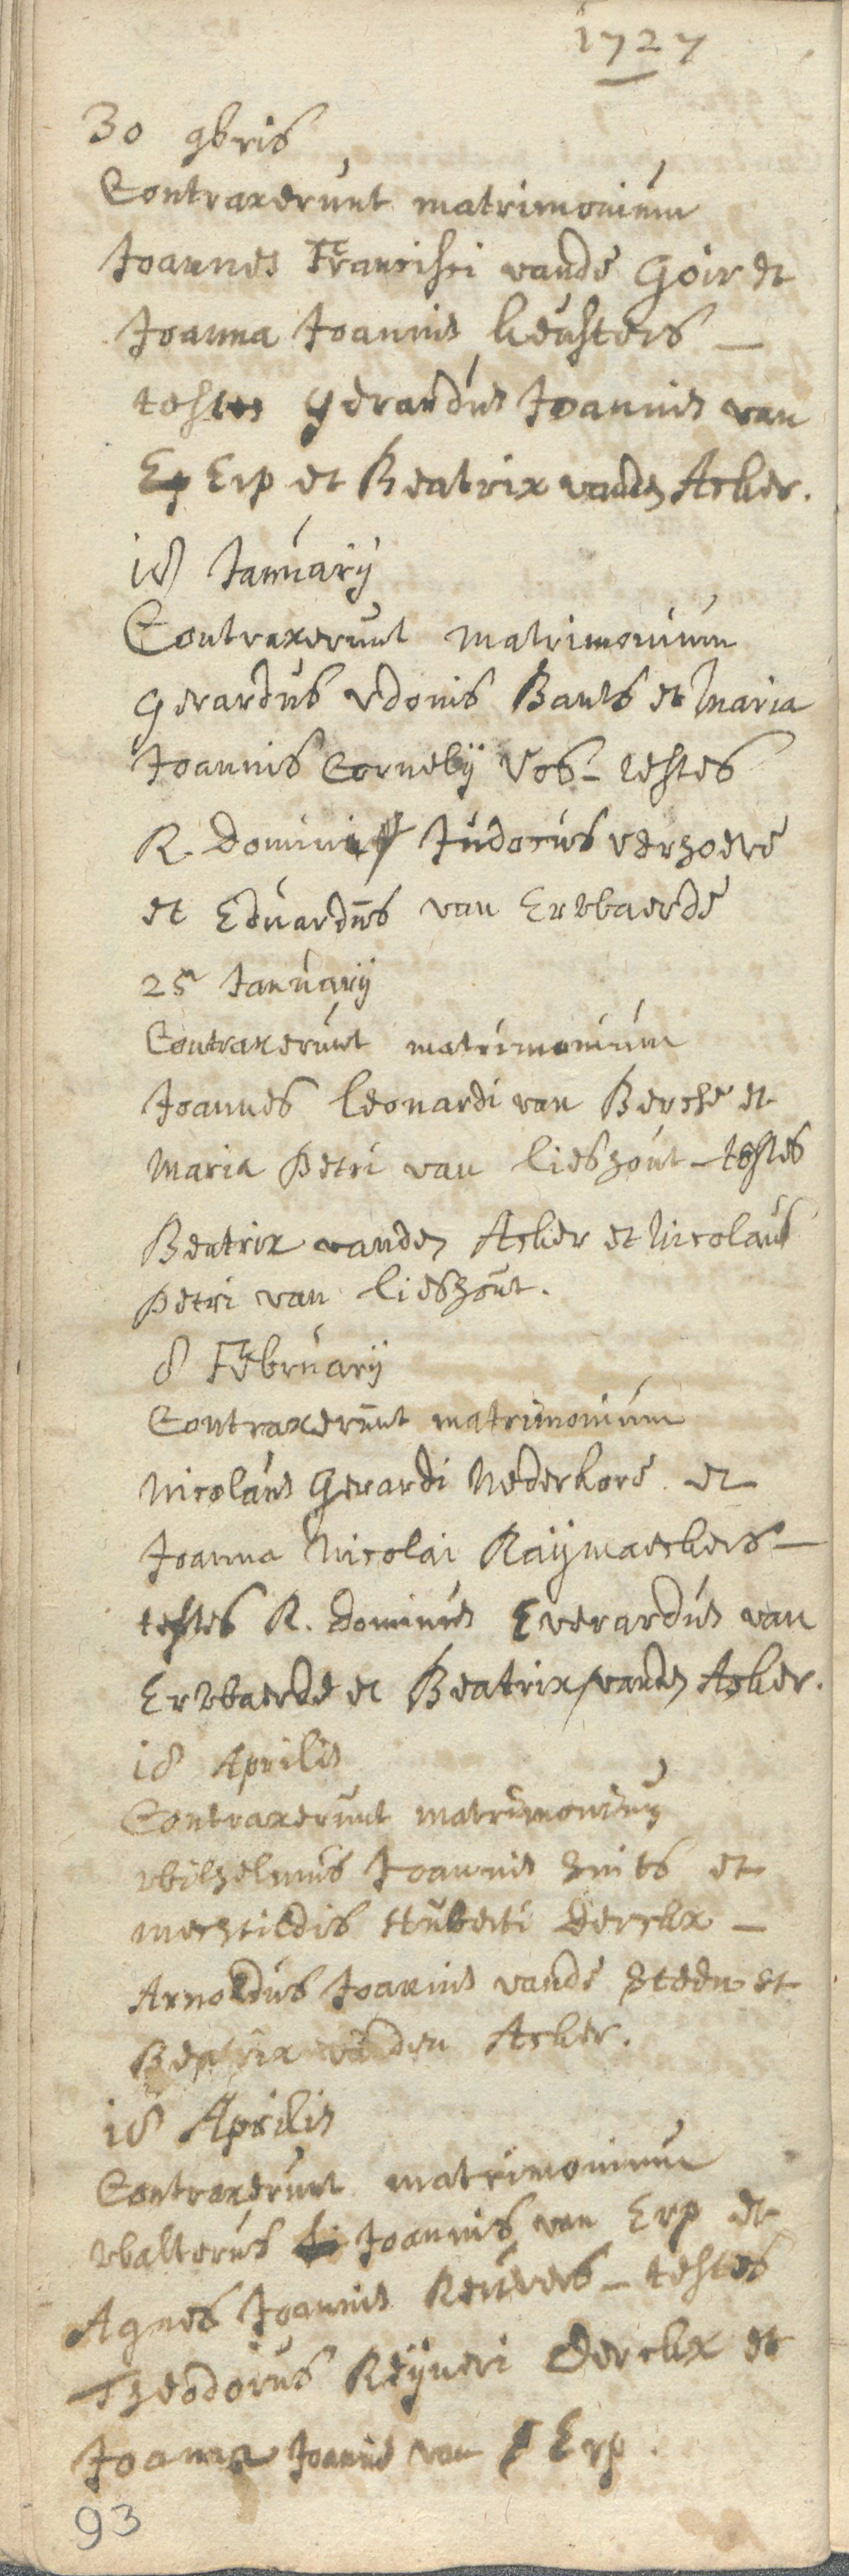 1727
30 9bris
Contraxerunt matrimonium
Joannes Francisci vande Goir et
Joanna Joannis heusters —
testes Gerardus Joannis van
Ep Erp et Beatrix vanden Acker.
18 January
Contraxerunt matrimonium
Gerardus Udonis Bants et Maria
Joannis Cornely Vos - testes
R. Domin Judocus verhoeve
et Eduardus van Erbbaerde
25 January
Contraxerunt matrimonium
Joannes Leonardi van Berche et
Maria Petri van Lieshout - testes
Beatrix vanden Acker et Nicolaus
Petri van Lieshout.
8 February
Contraxerunt matrimonium
Nicolaus Gerardi Nederhove et
Joanna Nicolai Raijmaeckers —
testes R. Dominus Everardus van
Erbbaerde et Beatrix vanden Acker.
18 Aprilis
Contraxerunt matrimonium
Wilhelmus Joannis Smits et
Mechtildis Huberti Derckx —
Arnoldus Joannis vande Steen et
Beatrix vanden Acker.
18 Aprilis
Contraxerunt matrimonium
Walterus Joannis van Erp et
Agnes Joannis Reuvers - testes
Theodorus Reijneri Derckx et
Joanna Joannis van Erp
93